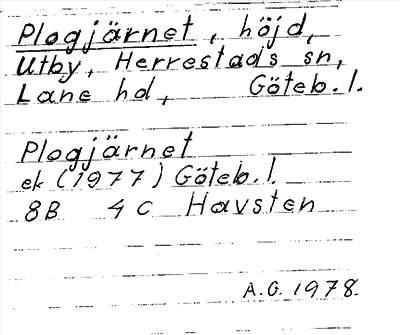 Plogjärnet, höjd,
Utby, Herrestads sn,
Lane hd, Göteb. l.
Plogjärnet
ek (1977) Göteb. l.
8B 4C Havsten
A.G. 1978.